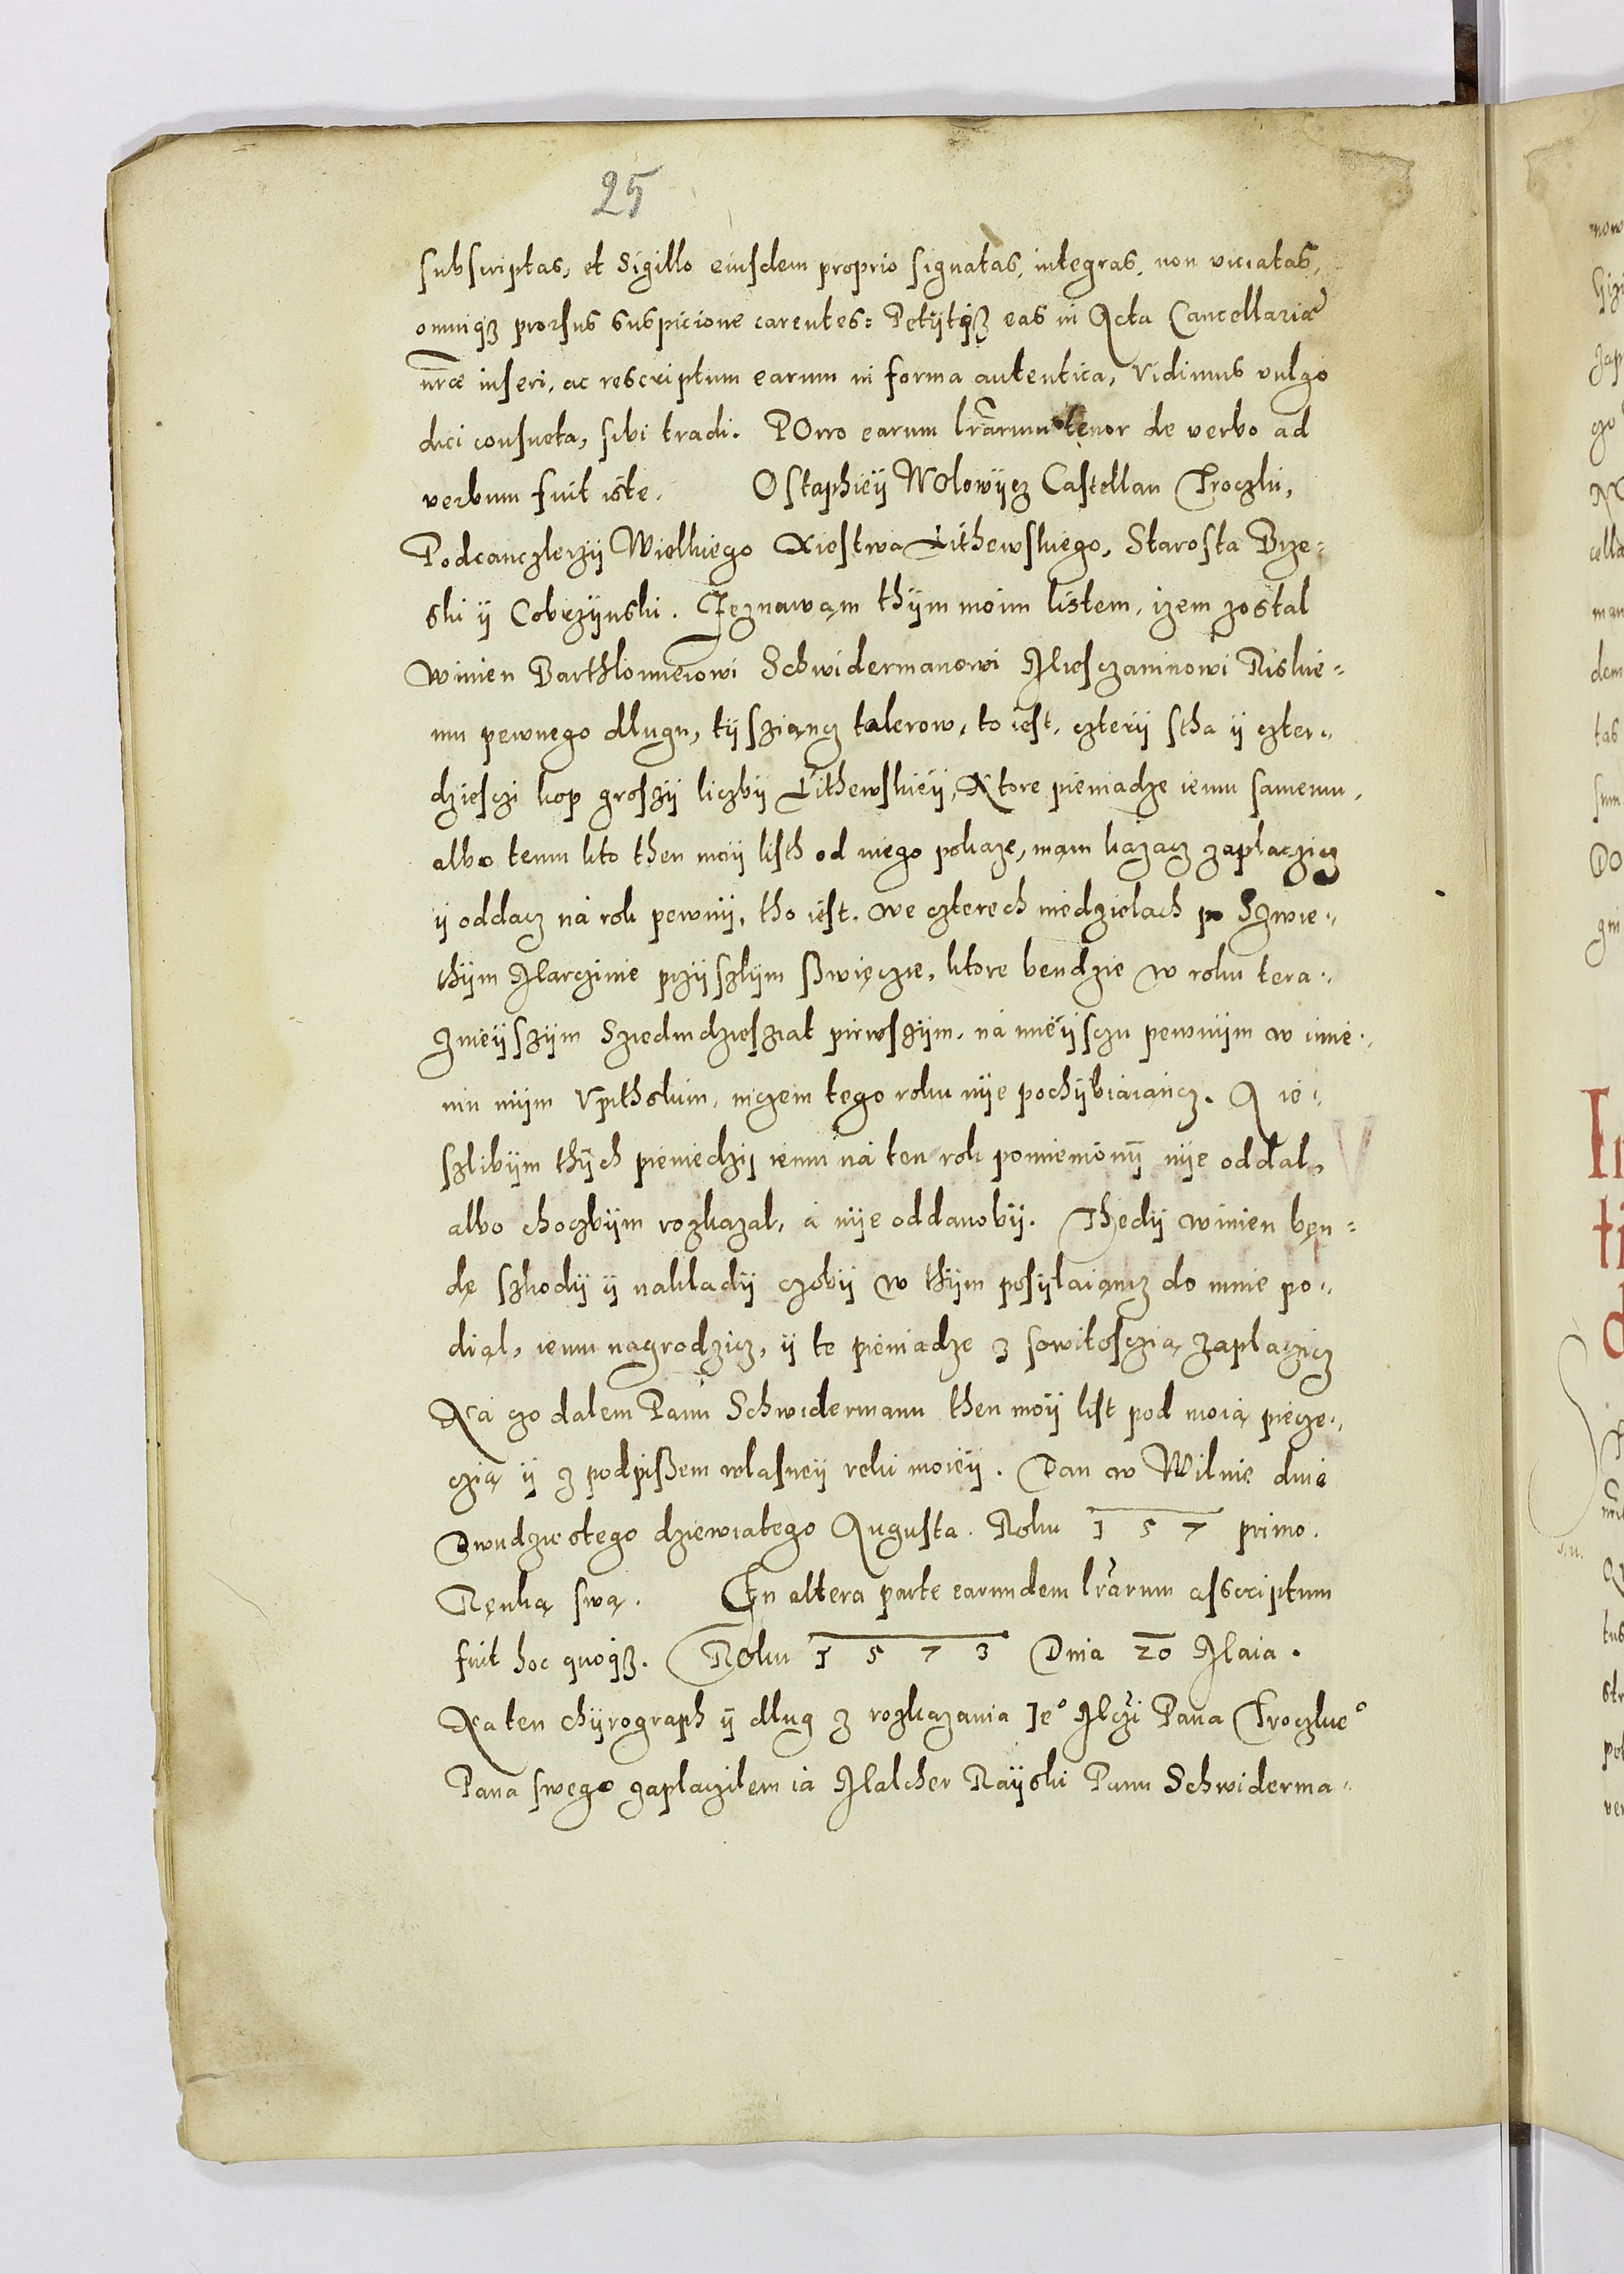 25
subscriptas, et Sigillo eiusdem proprio signatas, integras, non viciatas,
omniqꝫ prorsus suspicione carentes: Petijtqꝫ eas in Acta Cancellariæ
nr̃æ inseri, ac rescriptum earum in forma autentica, Vidimus vulgo
dici consueta, sibi tradi. POrro earum lr̃arum tenor de verbo ad
verbum fuit iste. Ostaphieÿ WOlowÿcz Castellan Troczki,
Podcanczlerzÿ Wielkiego Xiestwa Lithewskiego, Starosta Brze=
ski ÿ Cobrzÿnski. Zeznawąm thÿm moim listem, izem zostal
winien Barthlomieiowi Schwidermanowi Miesczaninowi Riskie=
mu pewnego dlugu, tÿsziącz talerow, to iest, czterÿ stha ÿ czter=
dziesczi kop groszÿ liczbÿ Lithewskieÿ, Ktore pieniadze iemu samemu,
albo temu kto then moÿ listh od niego pokaze, mąm kazacz zaplaczicz
ÿ oddacz ná rok pewnÿ, tho iest. we czterech niedzielach po Szwie=
thÿm Marczinie przÿszlÿm ßwięczie, ktore bendzie w roku tera=
znieÿszÿm Sziedmdziesziat pirwszÿm, ná mieÿsczu pewnÿm w imie=
niu mÿm Vpithskim, niczem tego roku nÿe pochÿbiaiancz. A ie=
szlibÿm thÿch pieniedzÿ iemu ná ten rok pomienionÿ nÿe oddal,
albo choczbÿm rozkazal, á nÿe oddanobÿ. Thedÿ winien bęn=
dę szkodÿ ÿ nakladÿ czobÿ w thÿm posÿlaiącz do mnie po=
dial, iemu nagrodzicz, ÿ te pieniadze z sowitosczią zaplaczicz
Ná czo dalem Panu Schwidermanu then moÿ list pod moią piecze=
czią ÿ z podpißem wlasneÿ reki moieÿ. Dan w Wilnie dnia
Dwudziestego dziewiatego Augusta. Roku 1 5 7 primo.
Ręnką swą. In altera parte earundem lr̃arum asscriptum
fuit hoc quoqꝫ. Roku 1 5 7 3 Dnia 20 Maia.
Na ten chÿrograph ÿ dlug z rozkazania Jeº Mczi Pana Troczkieº
Pana swego zaplaczilem ia Malcher Raÿski Panu Schwiderma=